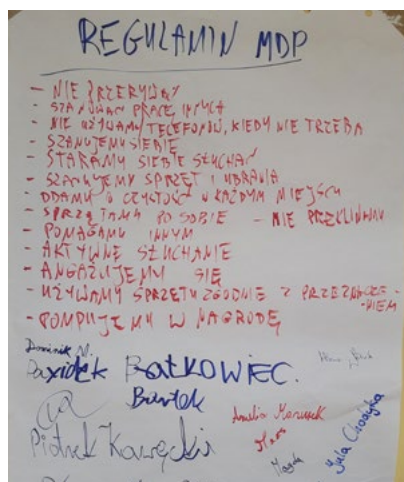 REGULAMIN MDP
- NIE PRZERYWAMY
- SZANOWAĆ PRACĘ INNYCH
- NIE UŻYWAMY TELEFONÓW, KIEDY NIE TRZEBA
- SZANUJEMY SIEBIE
- STARAMY SIEBIE SŁUCHAĆ
- SZANUJEMY SPRZĘT I UBRANIA
- DBAMY O CZYSTOŚĆ W KAŻDYM MIEJSCU
- SPRZĄTAMY PO SOBIE - NIE PRZEKLINAMY
- POMAGAMY INNYM
- AKTYWNE SŁUCHANIE
- ANGAŻUJEMY SIĘ
- UŻYWAMY SPRZĘTU ZGODNIE Z PRZEZNACZE-
NIEM
- POMPUJEMY W NAGRODĘ
Dominik N.
Dawidek BAŁKOWIEC.
Bartek
Amelia
Piotrek
Magda
Jula